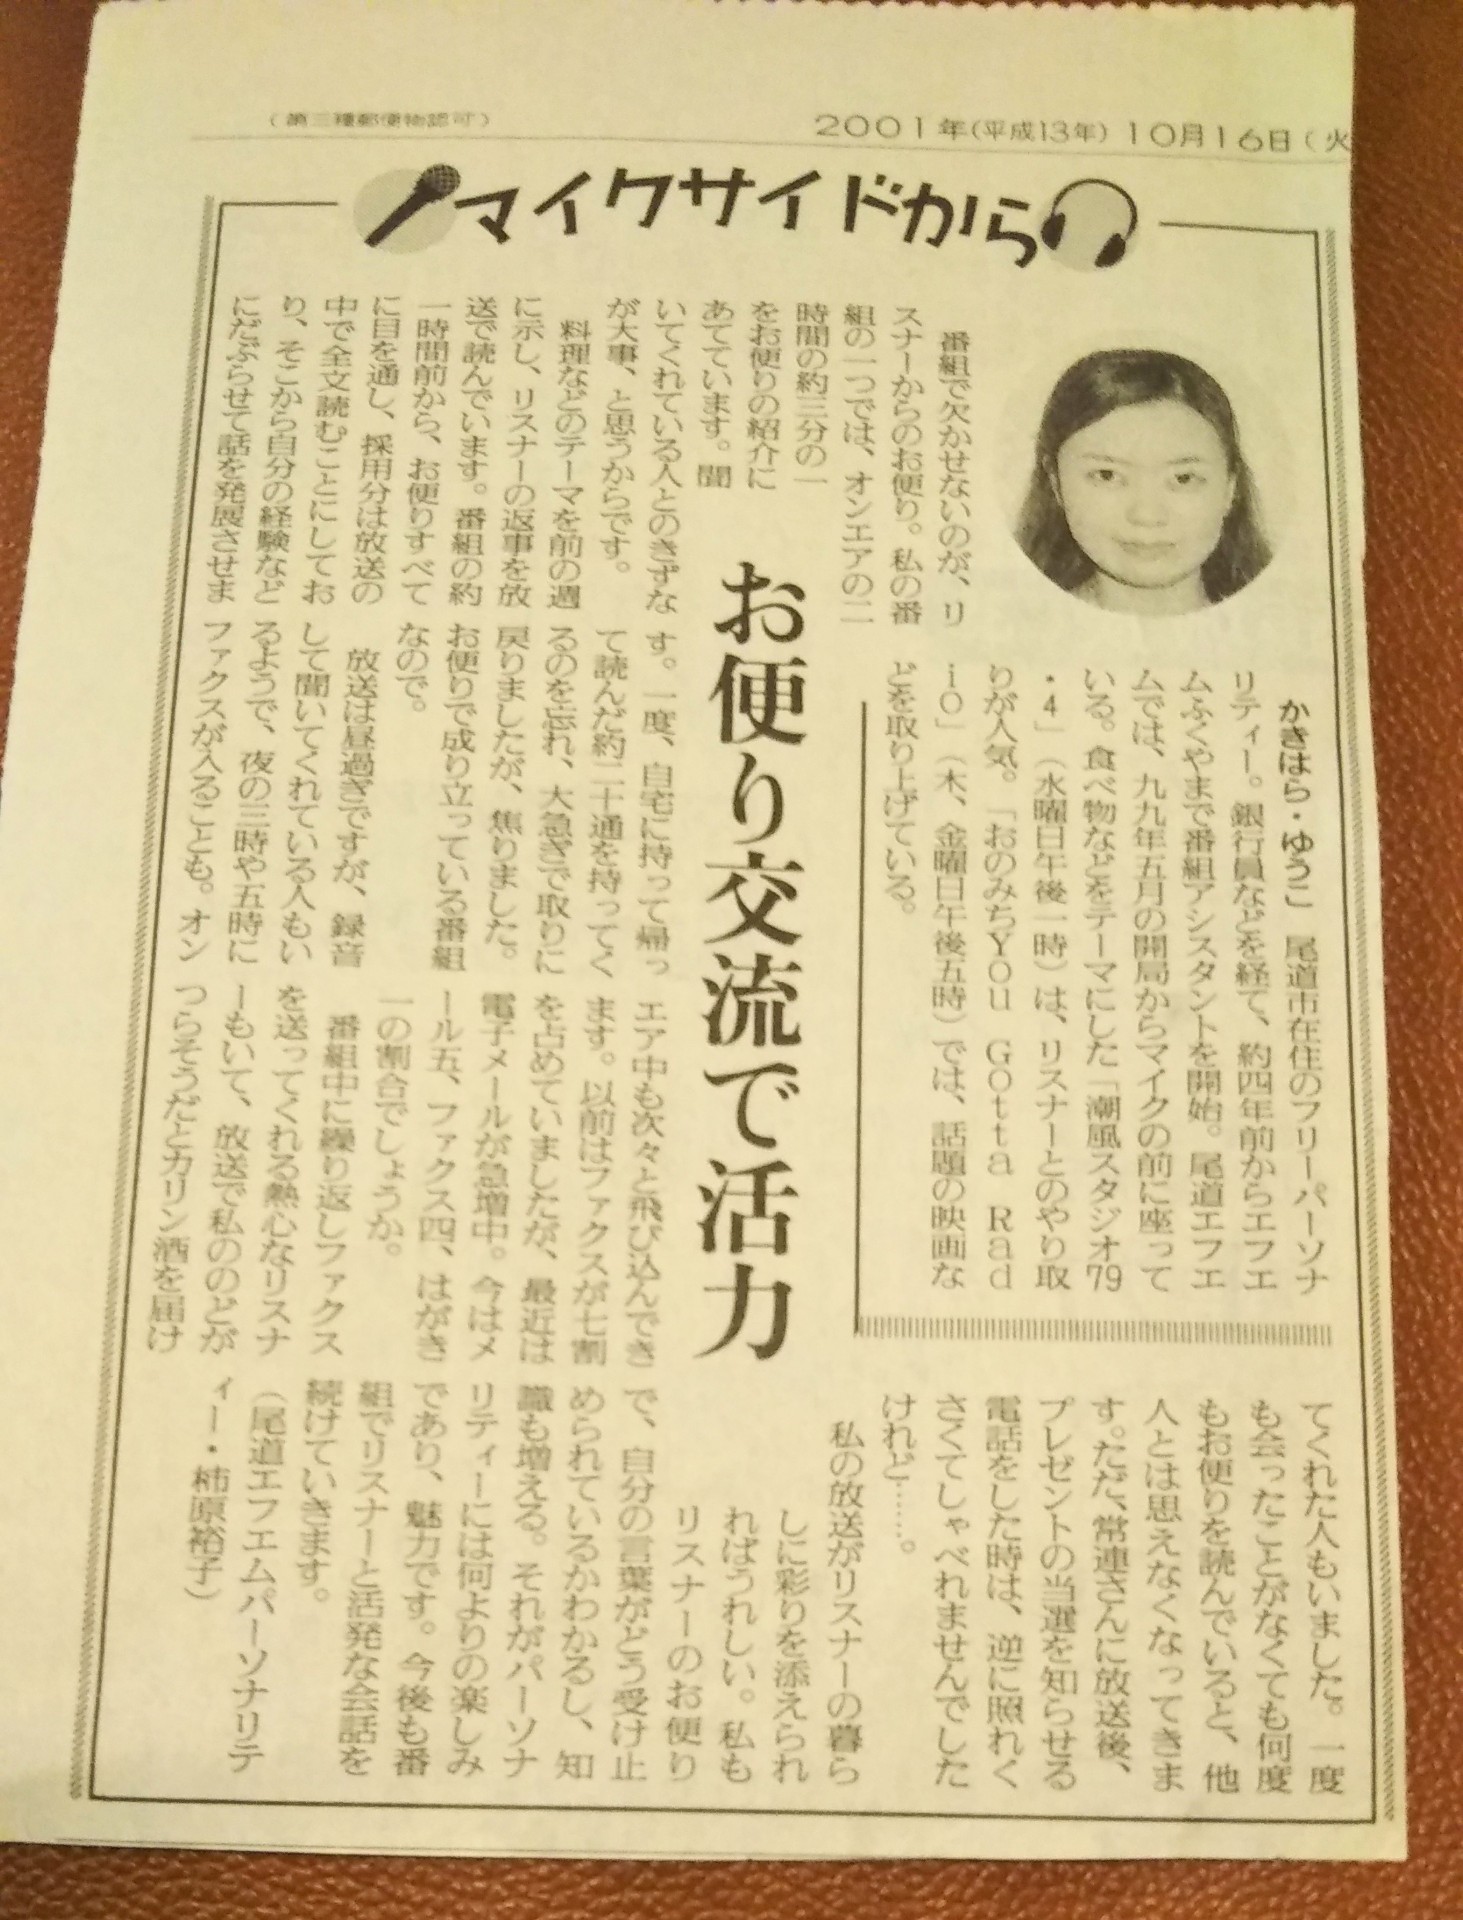 (第三種郵便物認可)
2001年(平成13年)10月16日(火
マイクサイドから
お便り交流で活力
番組で欠かせないのが、リ
スナーからのお便り。私の番
組の一つでは、オンエアの二
時間の約三分の一
をお便りの紹介に
あてています。聞
いてくれている人とのきずな
が大事、と思うからです。
料理などのテーマを前の週
に示し、リスナーの返事を放
送で読んでいます。番組の約
一時間前から、お便りすべて
に目を通し、採用分は放送の
中で全文読むことにしてお
り、そこから自分の経験など
にだぶらせて話を発展させま
す。一度、自宅に持って帰っ
て読んだ約二十通を持ってく
るのを忘れ、大急ぎで取りに
戻りましたが、焦りました。
お便りで成り立っている番組
なので。
放送は昼過ぎですが、録音
して聞いてくれている人もい
るようで、夜の三時や五時に
ファクスが入ることも。オン
エア中も次々と飛び込んでき
ます。以前はファクスが七割
を占めていましたが、最近は
電子メールが急増中。今はメ
ール五、ファクス四、はがき
一の割合でしょうか。
番組中に繰り返しファクス
を送ってくれる熱心なリスナ
ーもいて、放送で私ののどが
つらそうだとカリン酒を届け
てくれた人もいました。一度
も会ったことがなくても何度
もお便りを読んでいると、他
人とは思えなくなってきま
す。ただ、常連さんに放送後、
プレゼントの当選を知らせる
電話をした時は、逆に照れく
さくてしゃべれませんでした
けれど……。
私の放送がリスナーの暮ら
しに彩りを添えられ
ればうれしい。私も
リスナーのお便り
で、自分の言葉がどう受け止
められているかわかるし、知
識も増える。それがパーソナ
リティーには何よりの楽しみ
であり、魅力です。今後も番
組でリスナーと活発な会話を
続けていきます。
(尾道エフエムパーソナリテ
ィー・柿原裕子)
かきはら・ゆうこ 尾道市在住のフリーパーソナ
リティー。銀行員などを経て、約四年前からエフエ
ムふくやまで番組アシスタントを開始。尾道エフエ
ムでは、九九年五月の開局からマイクの前に座って
いる。食べ物などをテーマにした「潮風スタジオ79
・4」(水曜日午後一時)は、リスナーとのやり取
りが人気。「おのみちYou Gotta Rad
io」(木、金曜日午後五時)では、話題の映画な
どを取り上げている。